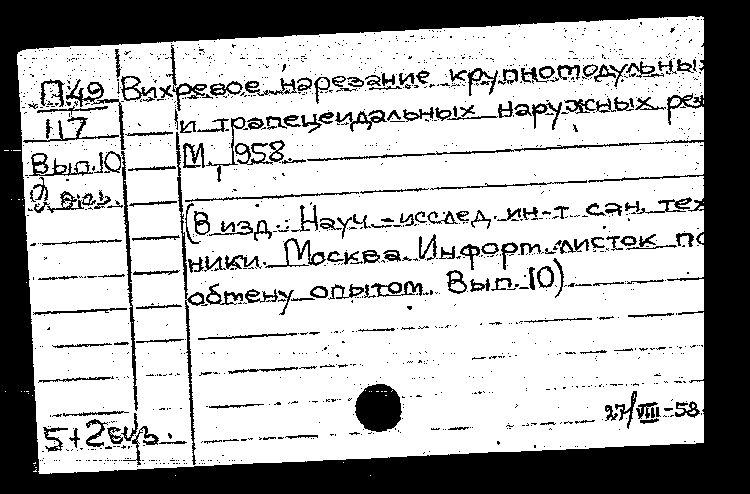 П.49 Вихревое нарезание крупномодульны
117 и трапецеидальных наружных рез
Вып.10 М., 1958.
2 экз.
(В изд.: Науч.-исслед. ин-т сан. тех
ники. Москва. Информ. листок по
обмену опытом. Вып. 10)
27/VIII-58
5+2 экз.